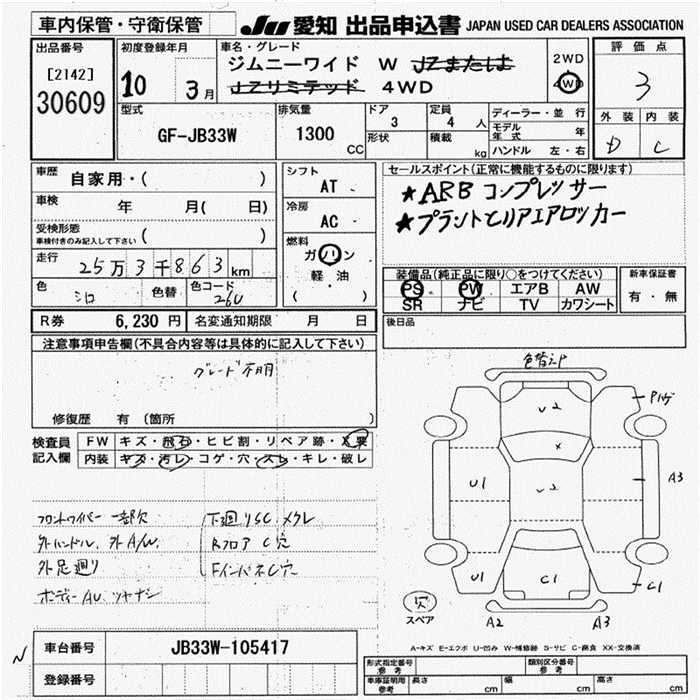 車内保管・守衛保管
JU 愛知 出品申込書 JAPAN USED CAR DEALERS ASSOCIATION
出品番号
[2142]
30609
初度登録年月
10 3月
車名・グレード
ジムニーワイド W JZまたは
JZリミテッド 4WD
2WD
4WD
評価点
3
外装 内装
D C
型式
GF-JB33W
排気量
1300
CC
ドア
3
形状
定員
4 人
積載
kg
ディーラー・並行
モデル年式 年
ハンドル 左・右
車歴
自家用・( )
車検
年 月( 日)
受検形態
車検付きのみ記入して下さい ( )
走行
25万3千863km
色
シロ
色替
色コード
26U
シフト
AT
冷房
AC
燃料
ガソリン
軽油
( )
セールスポイント(正常に機能するものに限ります)
★ARBコンプレッサー
★フラントとリアエアロッカー
装備品(純正品に限り○をつけてください)
PS PW エアB AW
SR ナビ TV カワシート
新車保証書
有・無
後日品
R券 6,230円
名変通知期限 月 日
注意事項申告欄(不具合内容等は具体的に記入して下さい)
グレード不明
修復歴 有 (箇所 )
検査員
記入欄
FW キズ・飛石・ヒビ割・リペア跡・X要
内装 キズ・汚レ・コゲ・穴・スレ・キレ・破レ
フロントワイパー 一部欠
外ハンドル、外A/W
外足廻り
ボディーAU ツヤナシ
下廻りSC メクレ
RフロアC穴
FインパネC穴
色替えP
U2
X
U2
U1
U1
C1
A3
C1
A2
A3
欠
スペア
A-キズ E-エクボ U-凹み W-補修跡 S-サビ C-腐食 XX-交換済
N
車台番号
JB33W-105417
登録番号
形式指定番号
参考
類別区分番号
参考
車庫証明用
参考
長さ cm
幅 cm
高さ cm